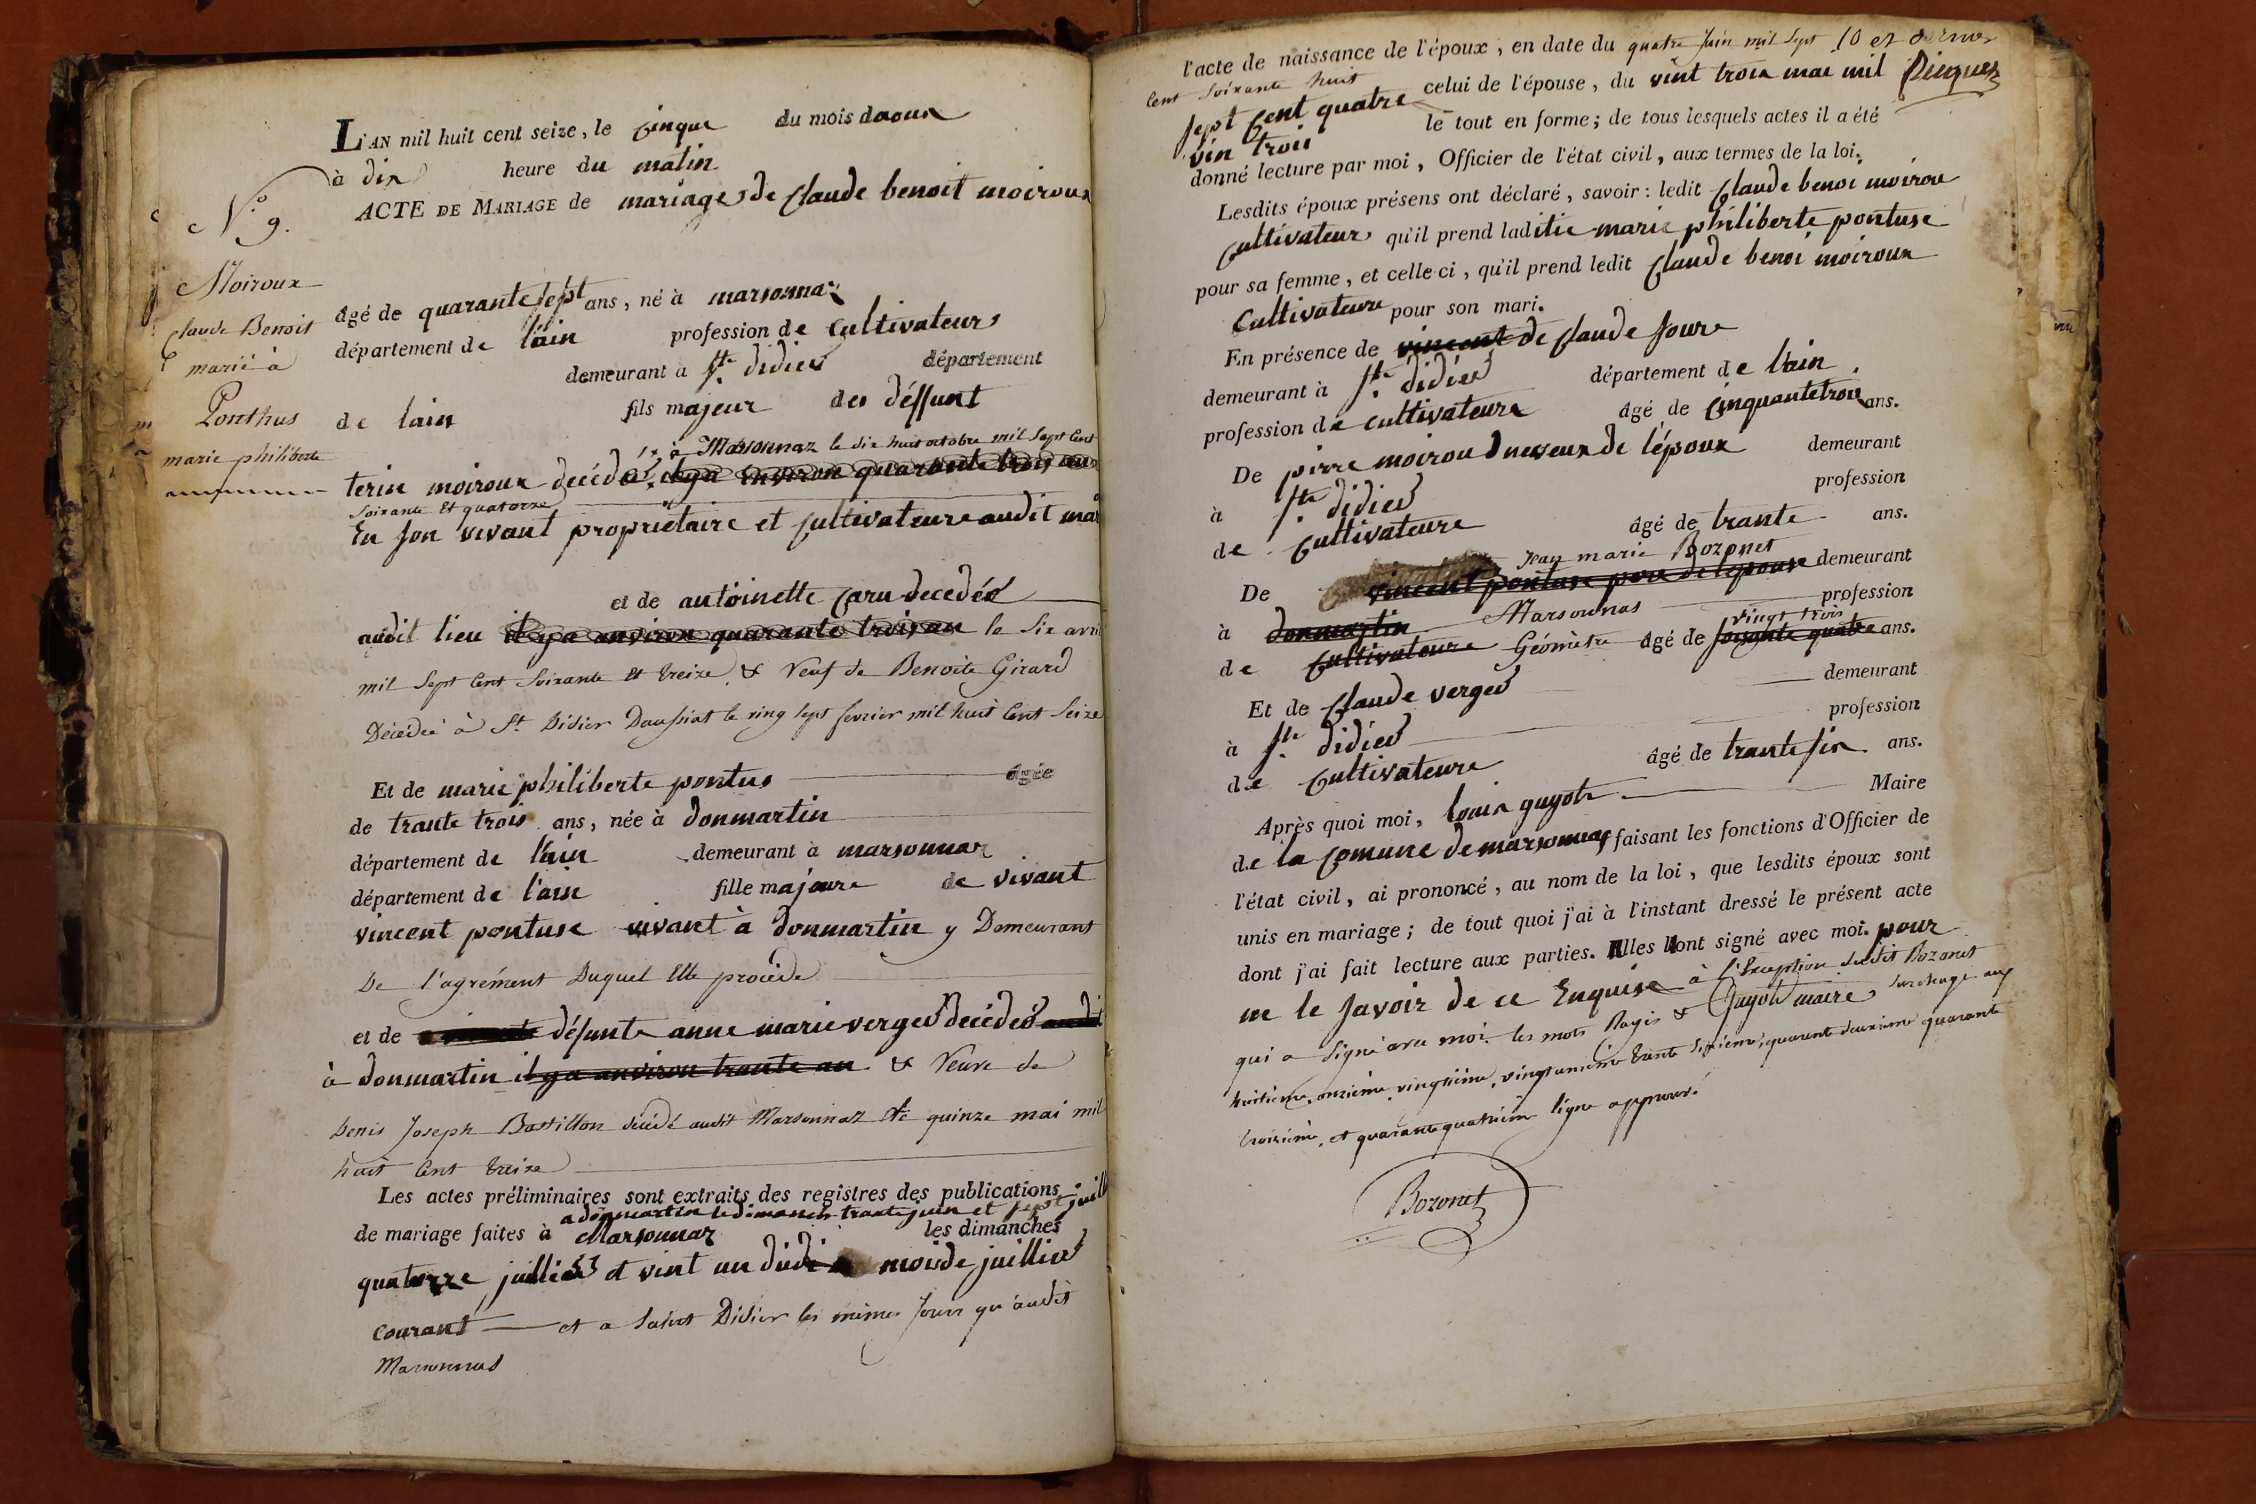 L'AN mil huit cent seize, le cinque du mois daoux
à dix heure du matin
ACTE DE MARIAGE de mariage de Claude benoit moiroux
N.º 9.
Moiroux
Claude Benoit
marié à
Ponthus
marie philiberte
âgé de quarante sept ans, né à marsonnaz
département de l'ain profession de cultivateur
demeurant à ste. didier département
de lain fils majeur des déffunt
à Marsonnaz le dix huit octobre mil sept cent
terin moiroux decédé il y a environ quarante trois ans
soixante et quatorze
en son vivant propriétaire et cultivateure audit mar
et de antoinette caru decedée
audit lieu il y a anviron quarante trois an le six avril
mil sept cent soixante et treize & veuf de Benoite Girard
Décédée à St. Didier Daussiat le ving sept fevrier mil huit cent seize
Et de marie philiberte pontus âgée
de trante trois ans, née à donmartin
département de l'ain demeurant à marsonnaz
département de l'ain fille majeure de vivant
vincent pontuse vivant à donmartin y Demeurant
De l'agrément Duquel Elle procède
et de défunte anne marie verger decédés
à donmartin il y a anviron trante an & Veuve de
Denis Joseph Bastillon décédé audit Marsonnaz le quinze mai mil
huit cent treize
Les actes préliminaires sont extraits des registres des publications
a donmartin le dimanch trante juin et sept juill
de mariage faites à Marsonnaz les dimanches
quatorze juillier et vint un dudi mois de juillier
courant et a saint Didier les mêmes jours qu'audit
Marsonnas
l'acte de naissance de l'époux, en date du quatre juin mil sept 10 et dernier
cent soixante huit celui de l'épouse, du vint troix mai mil
sept cent quatre le tout en forme; de tous lesquels actes il a été
vin trois
donné lecture par moi, Officier de l'état civil, aux termes de la loi.
Lesdits époux présens ont déclaré, savoir: ledit Claude benoi moirou
cultivateur qu'il prend laditie marie philiberte pontuse
pour sa femme, et celle-ci, qu'il prend ledit Claude benoi moiroux
Cultivateure pour son mari.
En présence de vincent de Claude soure
demeurant à ste. didier département de l'ain
profession de cultivateure âgé de cinquantetroix ans.
De pirre moirou dneveux de l'époux demeurant
à ste. didier profession
de cultivateure âgé de trante ans.
Jean marie Bozonet
De vincent pontuse pere de lepouse demeurant
à donmartin Marsonnas profession
vingt trois
de cultivateure Géomètre âgé de soixante quatre ans.
Et de Claude verger demeurant
à ste. didier profession
de cultivateure âgé de trante six ans.
Après quoi moi, louis guyot Maire
de la comune de marsonnas faisant les fonctions d'Officier de
l'état civil, ai prononcé, au nom de la loi, que lesdits époux sont
unis en mariage; de tout quoi j'ai à l'instant dressé le présent acte
dont j'ai fait lecture aux parties. Elles nont signé avec moi. pour
ne le savoir de ce Enquise à l'exception dudit Bozonet
qui a signé avec moi les mots Rayés & Guyot maire surcharge aux
huitième, onzième, vingtième, vingt unième trente sixième, quarante deuxième quarante
troisième, et quarante quatrième ligne approuvé.
Bozonet